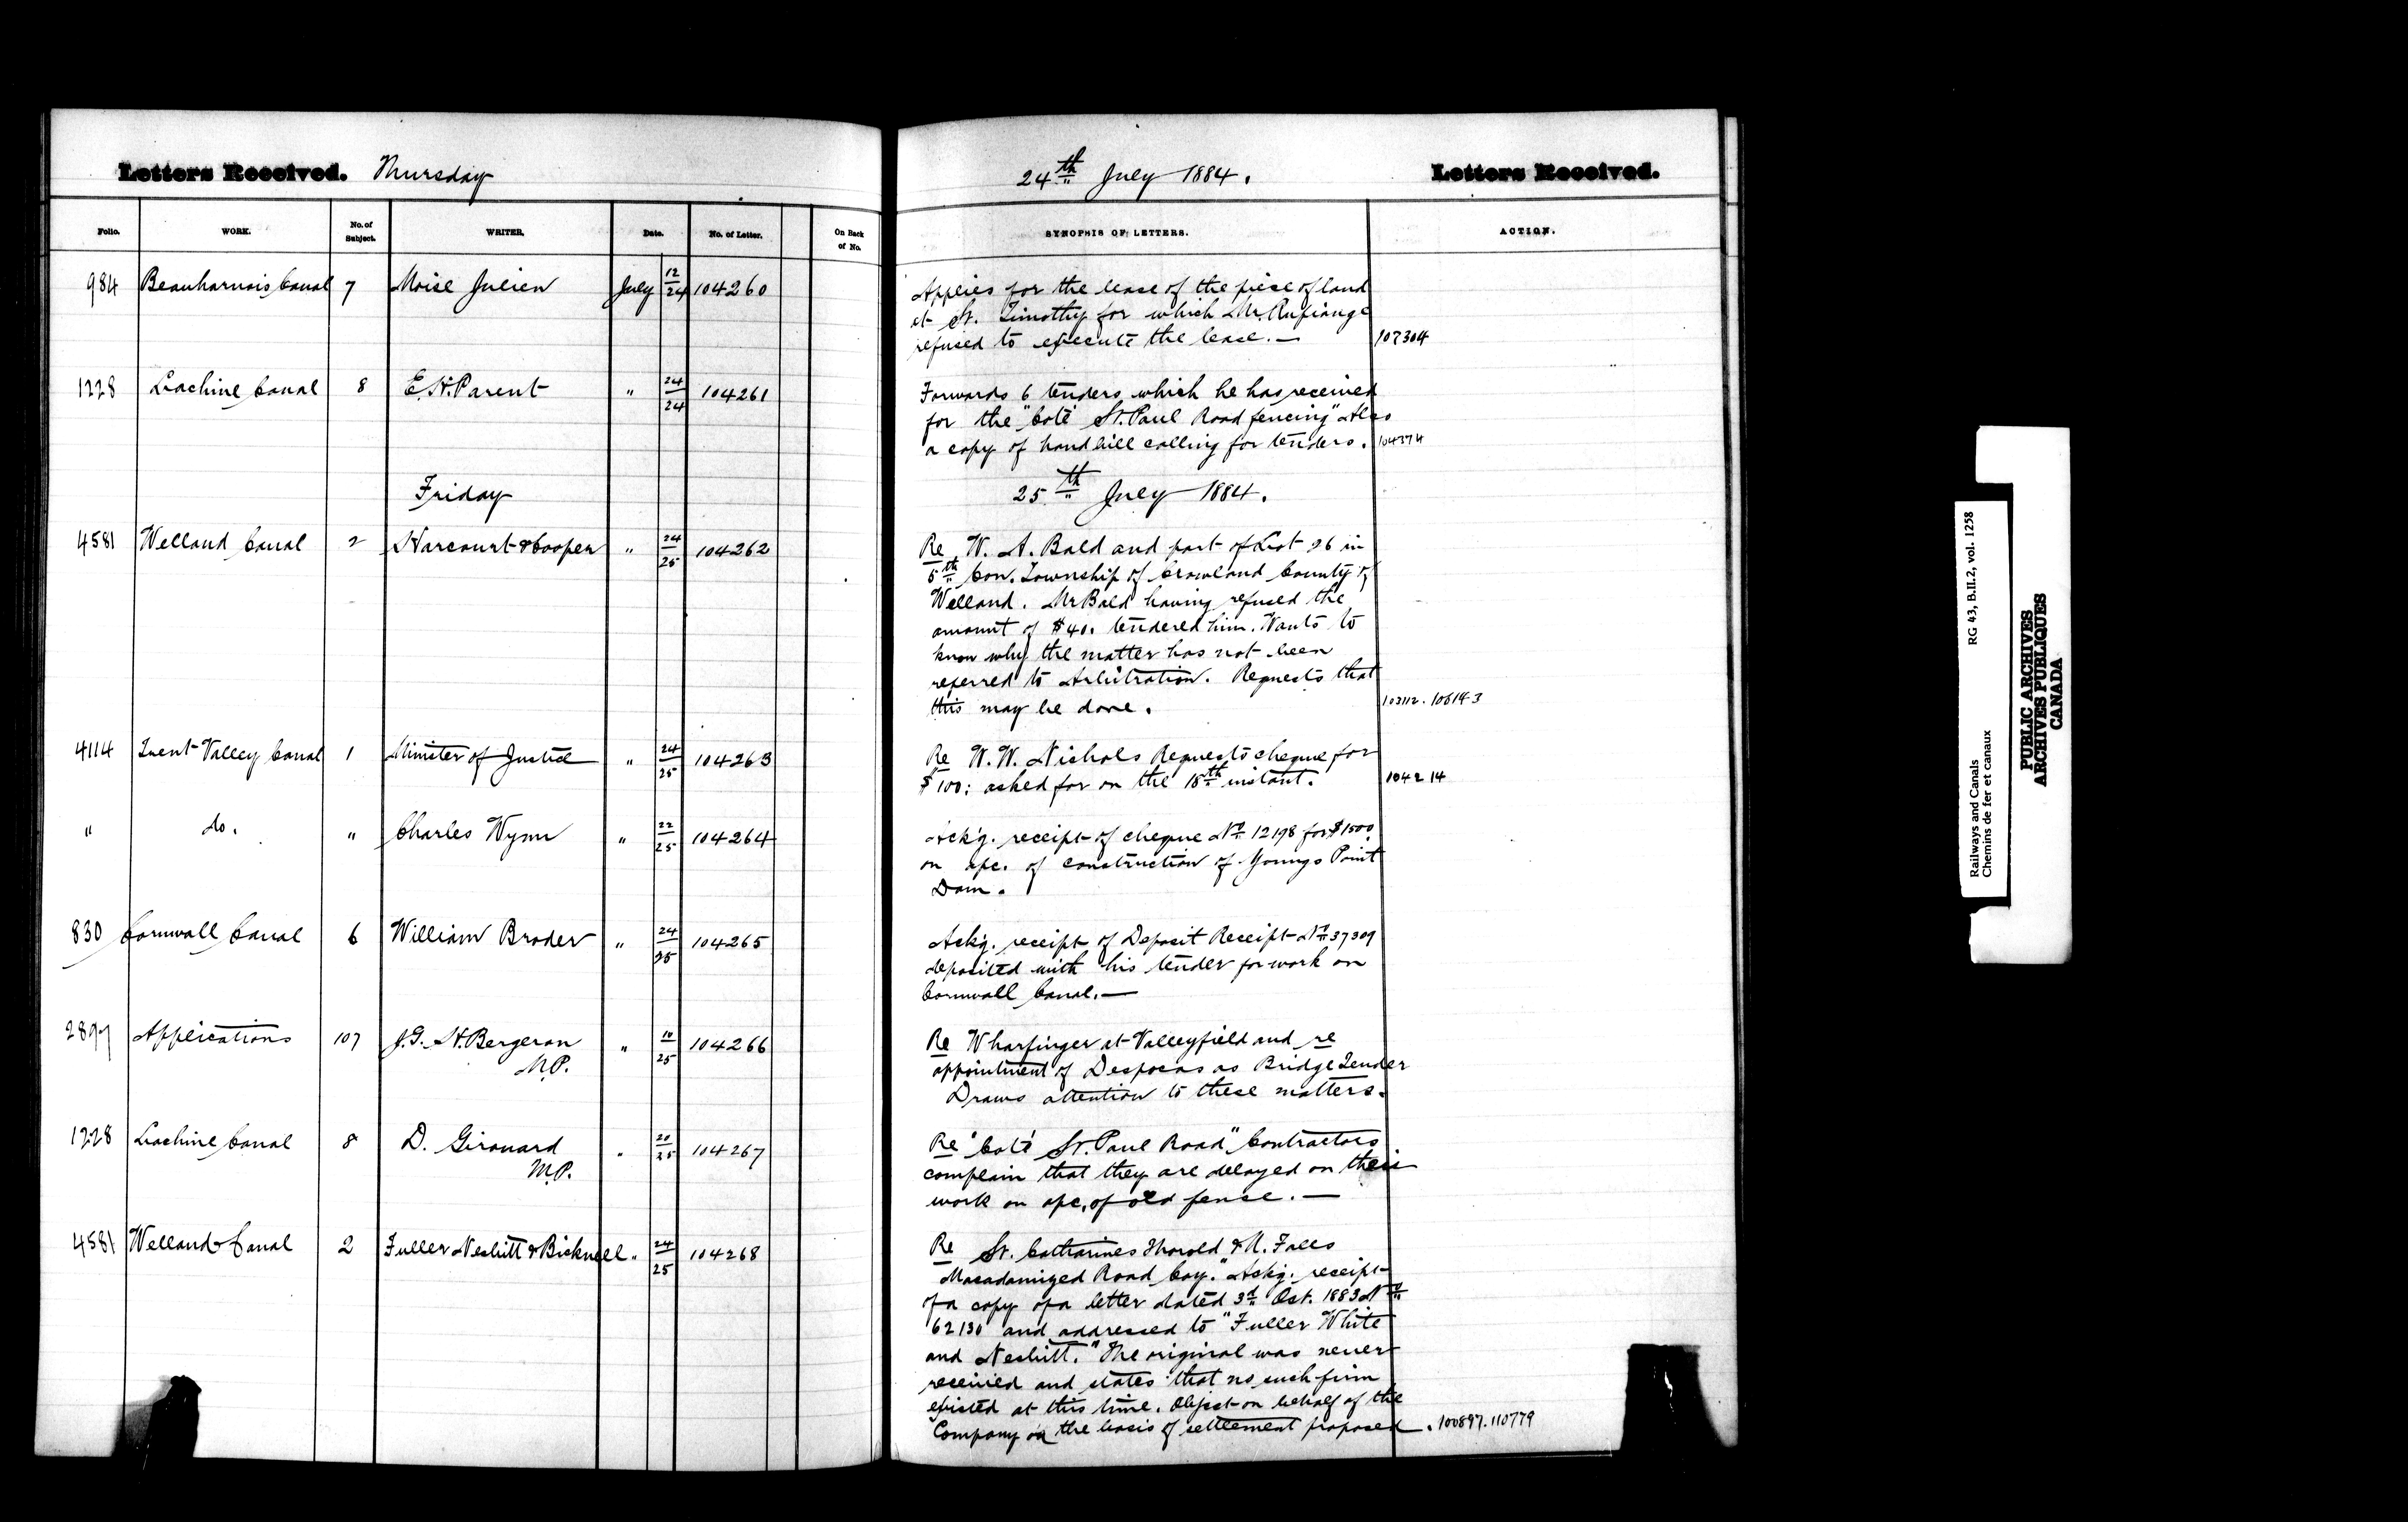 Letters Received. Thursday
24th July 1884.
Letters Received.
Folio. WORK. No. of Subject. WRITER. Date. No. of Letter. On Back of No. SYNOPSIS OF LETTERS. ACTION.
984 Beauharnois Canal 7 Moise Julien July 12/24 104260
Applies for the lease of the piece of land
at St. Timothy for which Mr. Rufiange
refused to execute the lease.— 107304
1228 Lachine Canal 8 E. H. Parent " 24/24 104261
Forwards 6 tenders which he has received
for the "Coté St. Paul Road fencing" Also
a copy of handbill calling for tenders. 104374
Friday 25th July 1884.
4581 Welland Canal 2 Harcourt & Cooper " 24/25 104262
Re W. A. Bald and part of Lot 26 in
5th Con. Township of Crowland County of
Welland. Mr Bald having refused the
amount of $40. tendered him. Wants to
know why the matter has not been
referred to Arbitration. Requests that
this may be done. 103112. 106143
4114 Trent Valley Canal 1 Minister of Justice " 24/25 104263
Re W. W. Nichols Requests cheque for
$100: asked for on the 18th instant. 104214
" do. " Charles Wynn " 22/25 104264
Ackg. receipt of cheque No 12198 for $1500
on a/c. of construction of Youngs Point
Dam.
830 Cornwall Canal 6 William Broder " 24/25 104265
Ackg. receipt of Deposit Receipt No 37309
deposited with his tender for work on
Cornwall Canal.—
2897 Applications 107 J. G. H. Bergeron M.P. " 10/25 104266
Re Wharfinger at Valleyfield and re
appointment of Despocas as Bridge Tender
Draws attention to these matters.
1228 Lachine Canal 8 D. Girouard M.P. " 20/25 104267
Re "Coté St. Paul Road" Contractors
complain that they are delayed on their
work on a/c. of old fence.—
4581 Welland Canal 2 Fuller Nesbitt & Bicknell " 24/25 104268
Re St. Catharines Thorold & N. Falls
Macadamized Road Coy." Ackg. receipt
of a copy of a letter dated 3d Oct. 1883 No
62130 and addressed to "Fuller White
and Nesbitt." The original was never
received and states that no such firm
existed at this time. Object on behalf of the
Company on the basis of settlement proposed. 100897. 110779
Railways and Canals RG 43, B.II.2, vol. 1258
Chemins de fer et canaux
PUBLIC ARCHIVES
ARCHIVES PUBLIQUES
CANADA